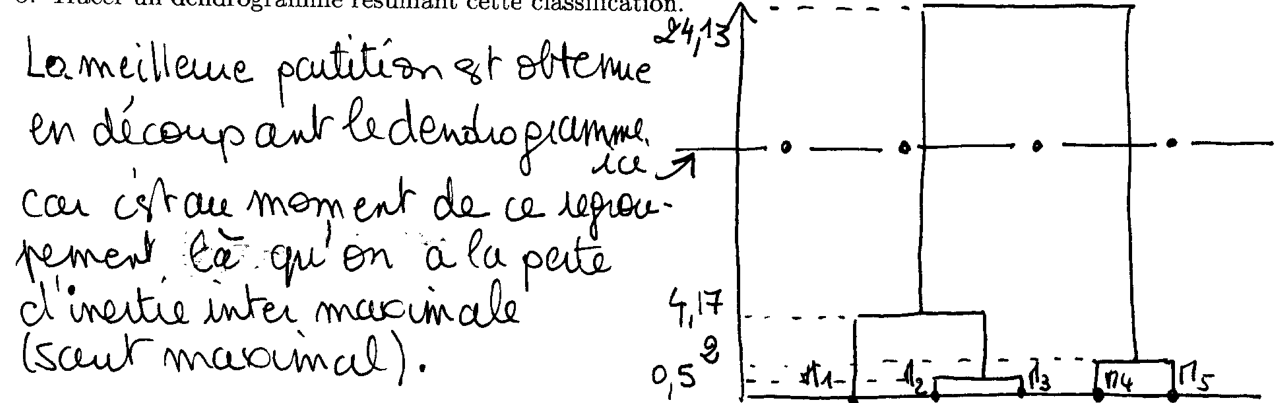 Tracer un dendrogramme résumant cette classification.
La meilleure partition est obtenue
en découpant le dendrogramme
ici
car c'est au moment de ce regrou-
pement là qu'on a la perte
d'inertie inter maximale
(saut maximal).
24,13
4,17
2
0,5
M1 M2 M3 M4 M5